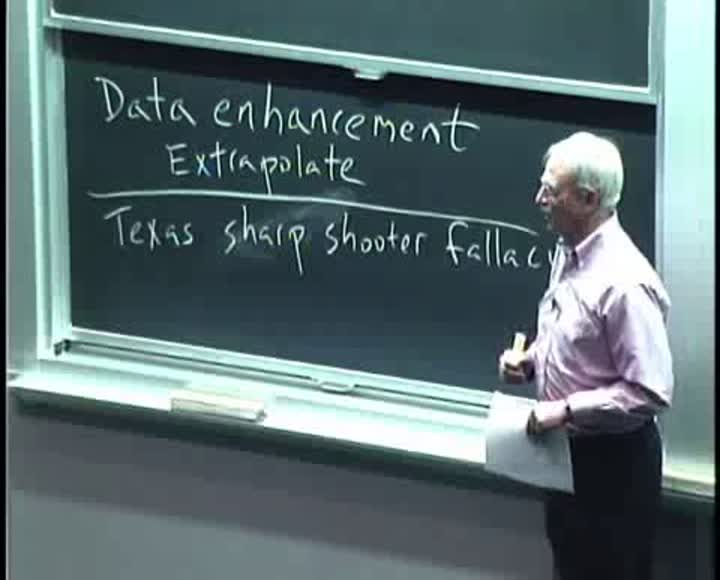 Data enhancement
Extrapolate
Texas sharp shooter fallacy